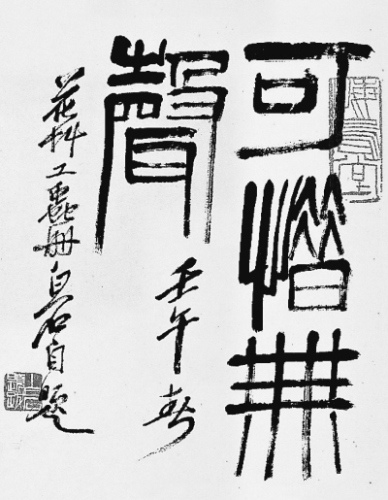 可惜無
聲
壬午春
花艸工蟲冊白石自題